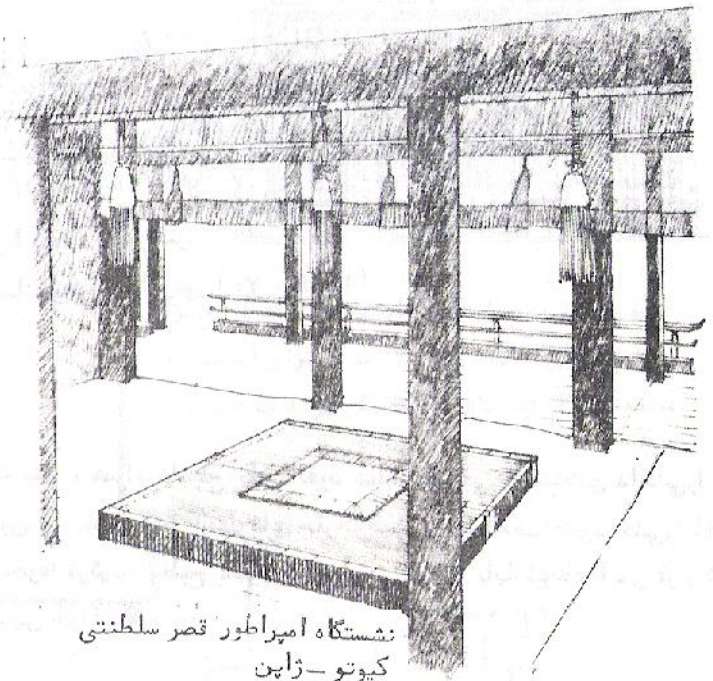 نشستگاه امپراطور قصر سلطنتی
کیوتو - ژاپن